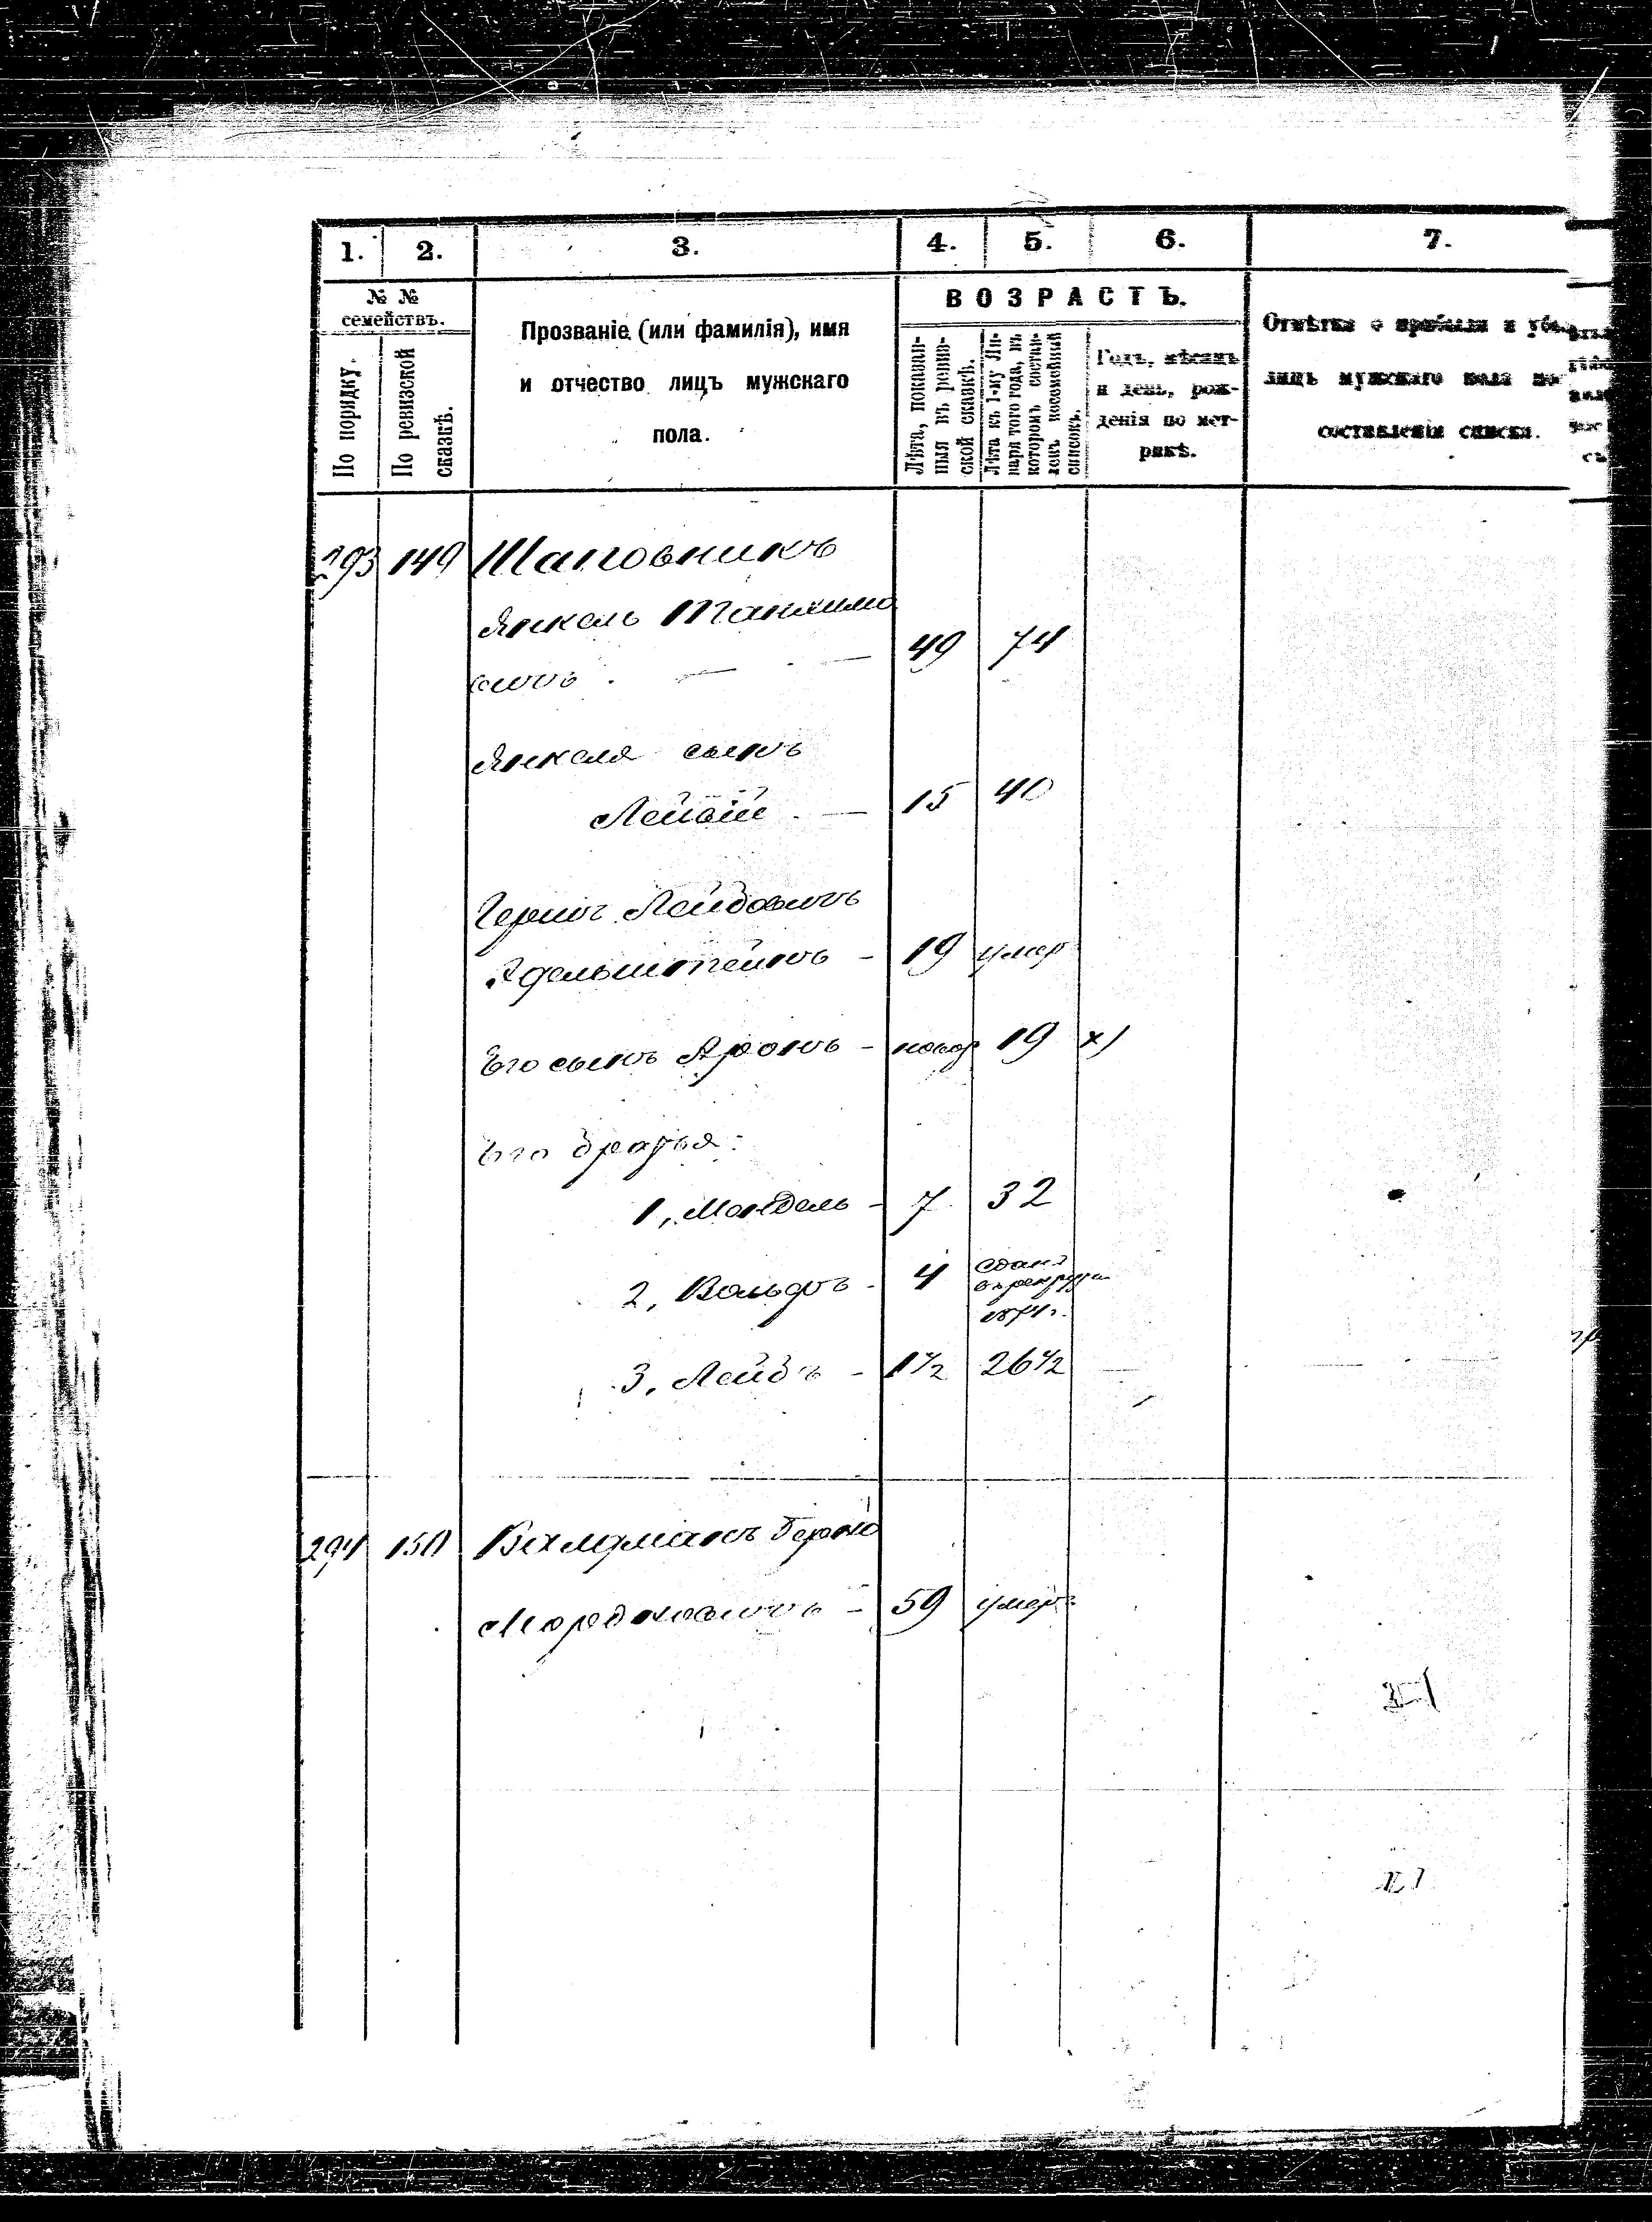 1. 2. 3. 4. 5. 6. 7.
№ №
семействъ.
По порядку.
По ревизской
сказкѣ.
Прозваніе (или фамилія), имя
и отчество лицъ мужскаго
пола.
ВОЗРАСТЪ.
Лѣта, показан-
ныя въ ревиз-
ской сказкѣ.
Лѣта къ 1-му Ян-
варя того года, въ
которомъ состав-
ленъ посемейный
списокъ.
Годъ, мѣсяцъ
и день, рож-
денія по мет-
рикѣ.
Отмѣтка о прибыли и
лицъ мужскаго пола
составленія списка.
293 149 Шаповникъ
Янкель
49 74
Янкеля сынъ
15 40
Лейбовичъ
Эдельштейнъ - 19 умеръ
Его сынъ Аронъ - новор 19 х)
Его братья:
1, Мендель - 7 32
2, Вольфъ - 4 сданъ
въ рекруты
3, Лейбъ - 1½ 26½
294 150 Валдманъ Берко
Мордковичъ - 59 умеръ